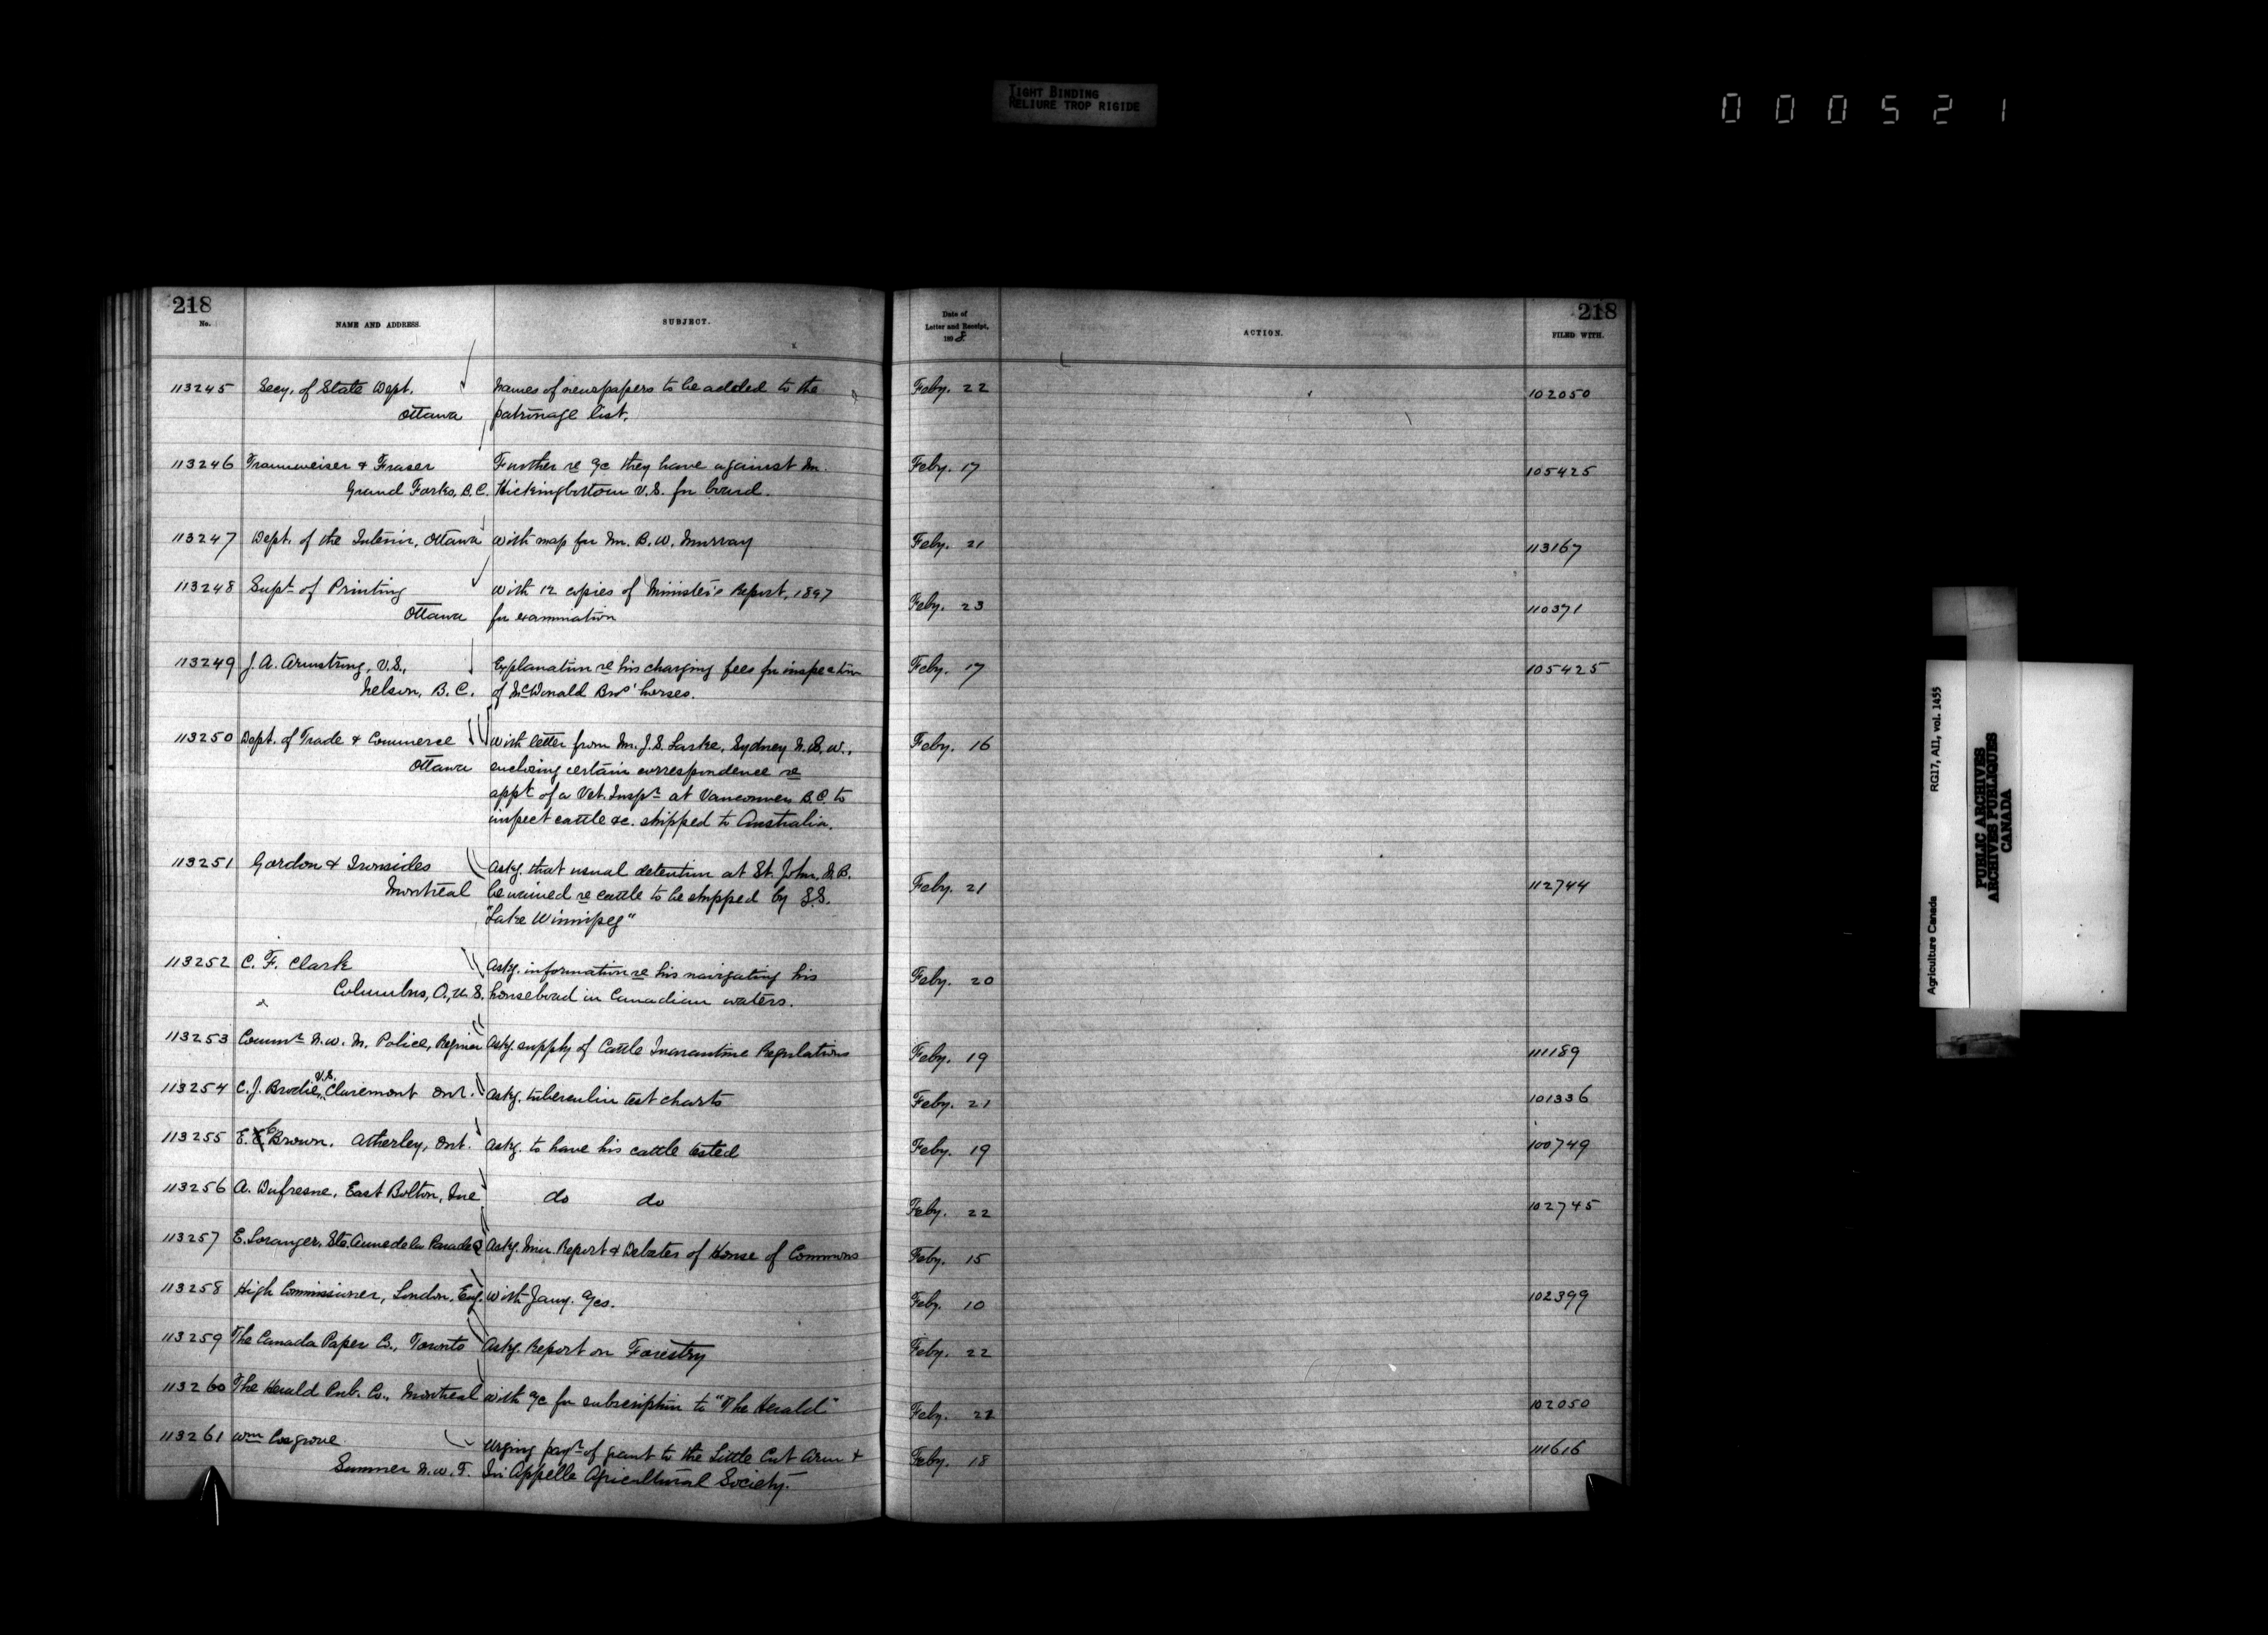 TIGHT BINDING
RELIURE TROP RIGIDE
000521
218
218
No.
NAME AND ADDRESS.
SUBJECT.
Date of
Letter and Receipt,
1898
ACTION.
FILED WITH.
113245 Secy. of State Dept. Names of newspapers to be added to the Feby. 22 102050
Ottawa patronage list.
113246 Traunweiser & Fraser Further re a/c they have against Mr. Feby. 17 105425
Grand Forks, B.C. Hickingbottom V.S. for board.
113247 Dept. of the Interior, Ottawa With map for Mr. B. W. Murray Feby. 21 113167
113248 Supt of Printing With 12 copies of Minister's Report, 1897 Feby. 23 110371
Ottawa for examination
113249 J. A. Armstrong, V.S., Explanation re his charging fees for inspection Feby. 17 105425
Nelson, B.C. of McDonald Bros' horses.
113250 Dept. of Trade & Commerce With letter from Mr. J. S. Larke, Sydney N.S.W., Feby. 16
Ottawa enclosing certain correspondence re
appt of a Vet. Inspr at Vancouver B.C. to
inspect cattle &c. shipped to Australia.
113251 Gordon & Ironsides Askg. that usual detention at St. John, N.B. Feby. 21 112744
Montreal be waived re cattle to be shipped by S.S.
"Lake Winnipeg"
113252 C. F. Clark Askg. information re his navigating his Feby. 20
Columbus, O., U.S. houseboad in Canadian waters.
113253 Commr N.W.M. Police, Regina Askg. supply of Cattle Quarantine Regulations Feby. 19 111189
113254 C. J. Brodie, V.S. Claremont Ont. Askg. tuberculin test charts Feby. 21 101336
113255 E. Brown, Atherley, Ont. Askg. to have his cattle tested Feby. 19 100749
113256 A. Dufresne, East Bolton, Que do do Feby. 22 102745
113257 E. Loranger, Ste. Anne de la Parade Q Askg. Min. Report & Debates of House of Commons Feby. 15
113258 High Commissioner, London, Eng. With Jany. a/cs. Feby. 10 102399
113259 The Canada Paper Co., Toronto Askg. Report on Forestry Feby. 22
113260 The Herald Pub. Co., Montreal With a/c for subscription to "The Herald" Feby. 22 102050
113261 Wm Cosgrove Urging paymt of grant to the Little Cut Arm & Feby. 18 111616
Sumner N.W.T. Qu'Appelle Agricultural Society.
Agriculture Canada RG17, AI1, vol. 1455
PUBLIC ARCHIVES
ARCHIVES PUBLIQUES
CANADA